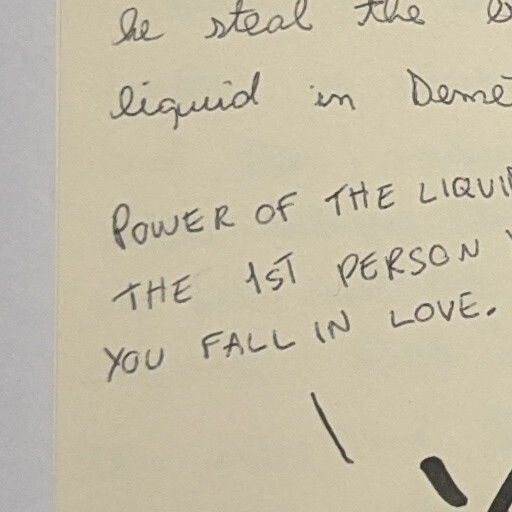 he steal the
liquid in
POWER OF THE
THE 1ST PERSON
YOU FALL IN LOVE.